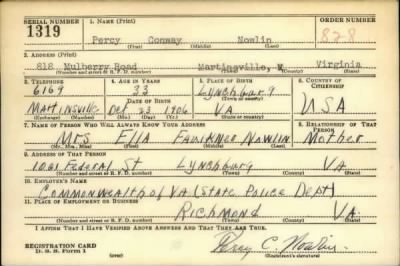 SERIAL NUMBER 1. NAME (Print) ORDER NUMBER
1319 Percy Conway Nowlin 828
(First) (Middle) (Last)
2. ADDRESS (Print)
818 Mulberry Road Martinsville, Virginia
(Number and street or R. F. D. number) (Town) (County) (State)
3. TELEPHONE 4. AGE IN YEARS 5. PLACE OF BIRTH 6. COUNTRY OF CITIZENSHIP
6169 33 LYNCHBURG
DATE OF BIRTH (Town or county) USA
MARTINSVILLE Dec 23 1906 VA
(Exchange) (Number) (Mo.) (Day) (Yr.) (State or country)
7. NAME OF PERSON WHO WILL ALWAYS KNOW YOUR ADDRESS 8. RELATIONSHIP OF THAT PERSON
MRS ELLA FAULKNER NOWLIN Mother
(Mr., Mrs., Miss) (First) (Middle) (Last)
9. ADDRESS OF THAT PERSON
1021 Federal St LYNCHBURG VA
(Number and street or R. F. D. number) (Town) (County) (State)
10. EMPLOYER'S NAME
COMMONWEALTH OF VA (STATE POLICE DEPT)
11. PLACE OF EMPLOYMENT OR BUSINESS
RICHMOND VA.
(Number and street or R. F. D. number) (Town) (County) (State)
I AFFIRM THAT I HAVE VERIFIED ABOVE ANSWERS AND THAT THEY ARE TRUE.
REGISTRATION CARD
D. S. S. Form 1 Percy C. Nowlin
(Registrant's signature)